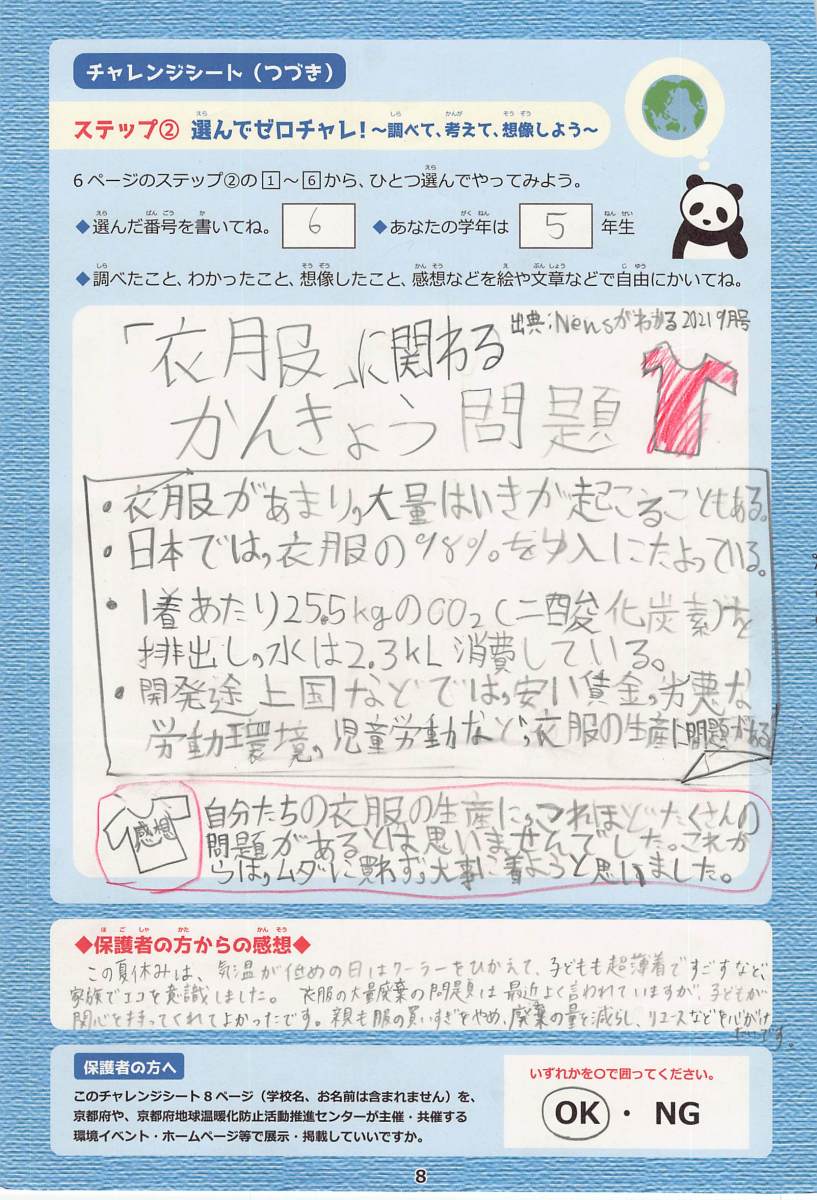 チャレンジシート（つづき）
ステップ② 選んでゼロチャレ！～調べて、考えて、想像しよう～
6ページのステップ②の1～6から、ひとつ選んでやってみよう。
◆選んだ番号を書いてね。 6 ◆あなたの学年は 5 年生
◆調べたこと、わかったこと、想像したこと、感想などを絵や文章などで自由にかいてね。
出典；Newsがわかる2021 9月号
「衣服」に関わる
かんきょう問題
・衣服があまり、大量はいきが起こることもある。
・日本では、衣服の98%をゆ入にたよっている。
・1着あたり25.5kgのCO2(二酸化炭素)を
排出し、水は2.3kL消費している。
・開発途上国などでは、安い賃金、劣悪な
労動環境、児童労動など、衣服の生産に問題がある
感想
自分たちの衣服の生産に、これほどたくさんの
問題があるとは思いませんでした。これか
らは、ムダに買わず、大事に着ようと思いました。
◆保護者の方からの感想◆
この夏休みは、気温が低めの日はクーラーをひかえて、子どもも超薄着ですごすなど、
家族でエコを意識しました。 衣服の大量廃棄の問題は最近よく言われていますが、子どもが
関心を持ってくれてよかったです。親も服の買いすぎをやめ、廃棄の量を減らし、リユースなどを心がけ
たいです。
保護者の方へ
このチャレンジシート8ページ（学校名、お名前は含まれません）を、
京都府や、京都府地球温暖化防止活動推進センターが主催・共催する
環境イベント・ホームページ等で展示・掲載していいですか。
いずれかを〇で囲ってください。
OK ・ NG
8